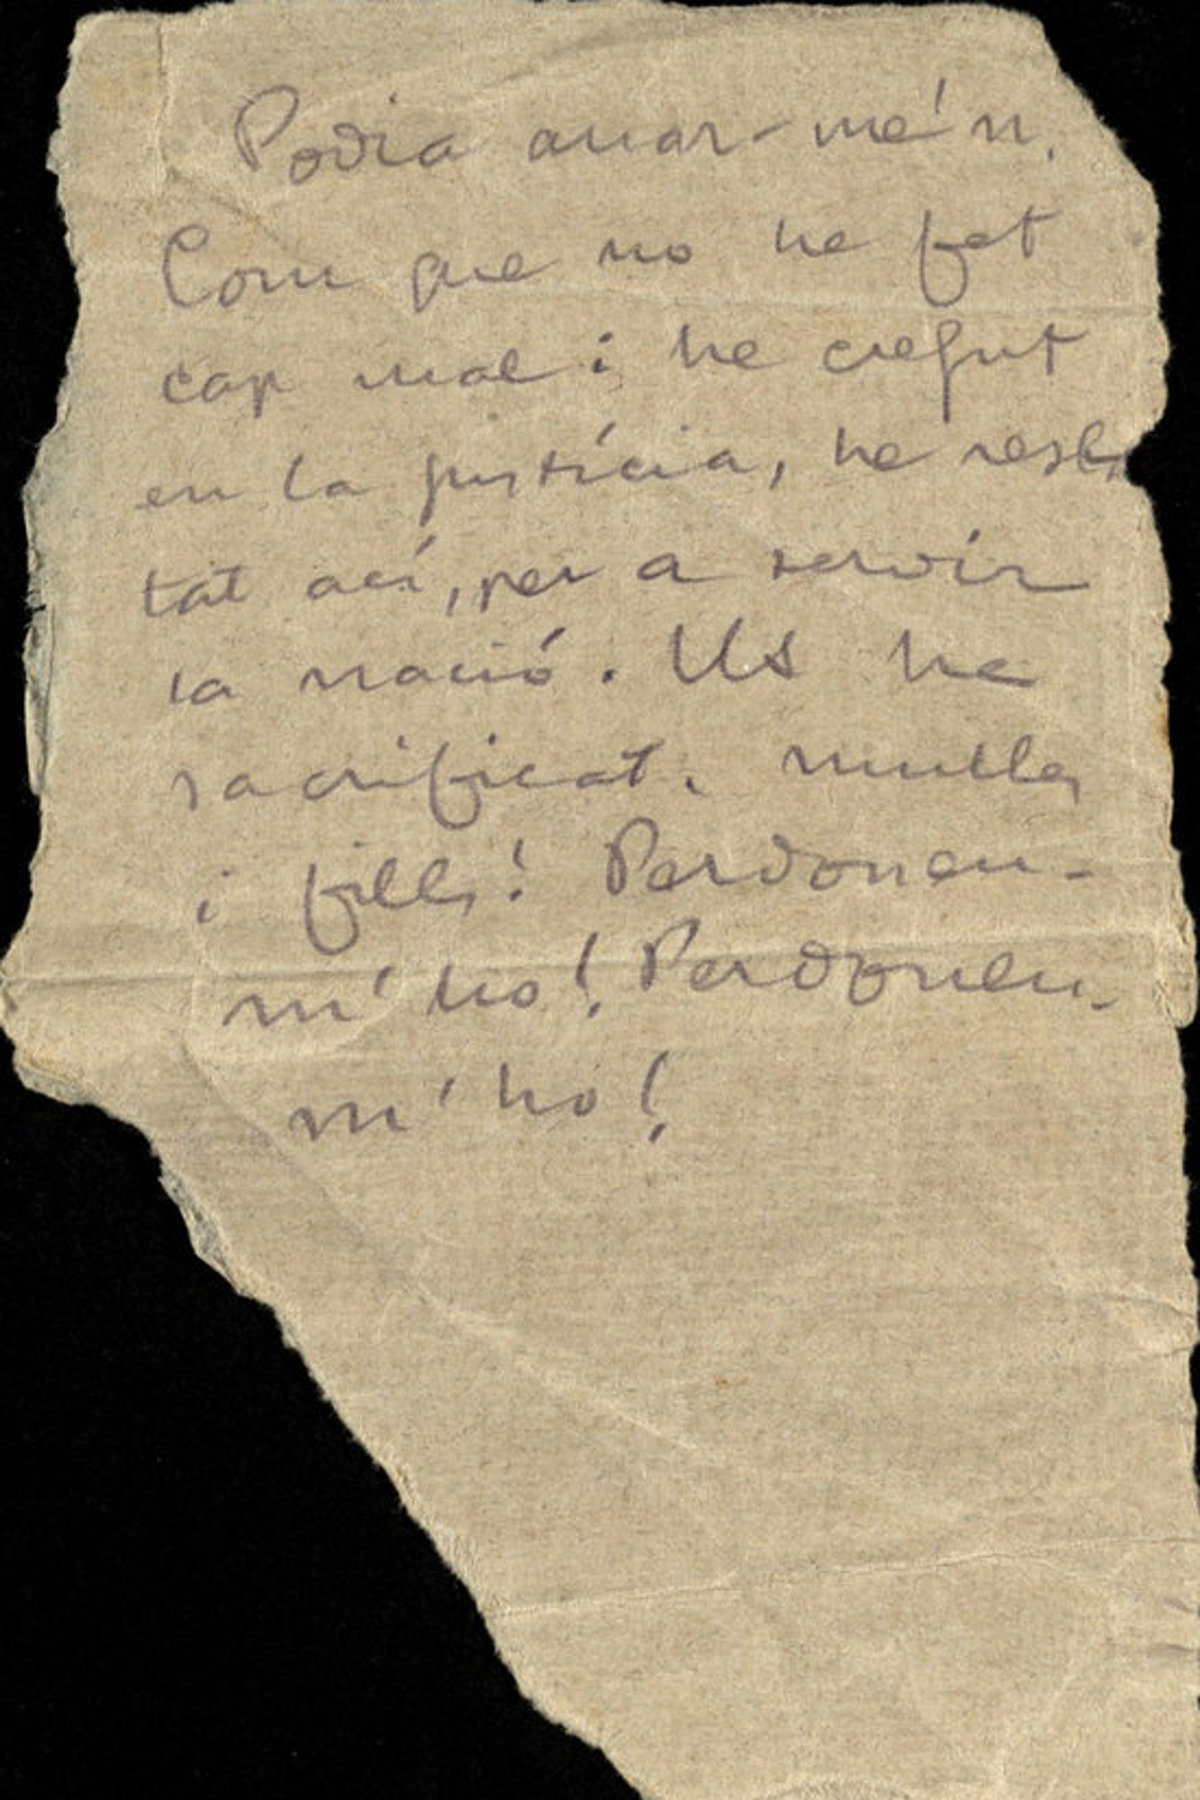 Podia anar-me'n.
Com que no he fet
cap mal i he cregut
en la justícia, he res
tat ací, per a servir
la nació. Us he
sacrificat. muller
i fills! Perdoneu-
m'ho! Perdoneu-
m'ho!